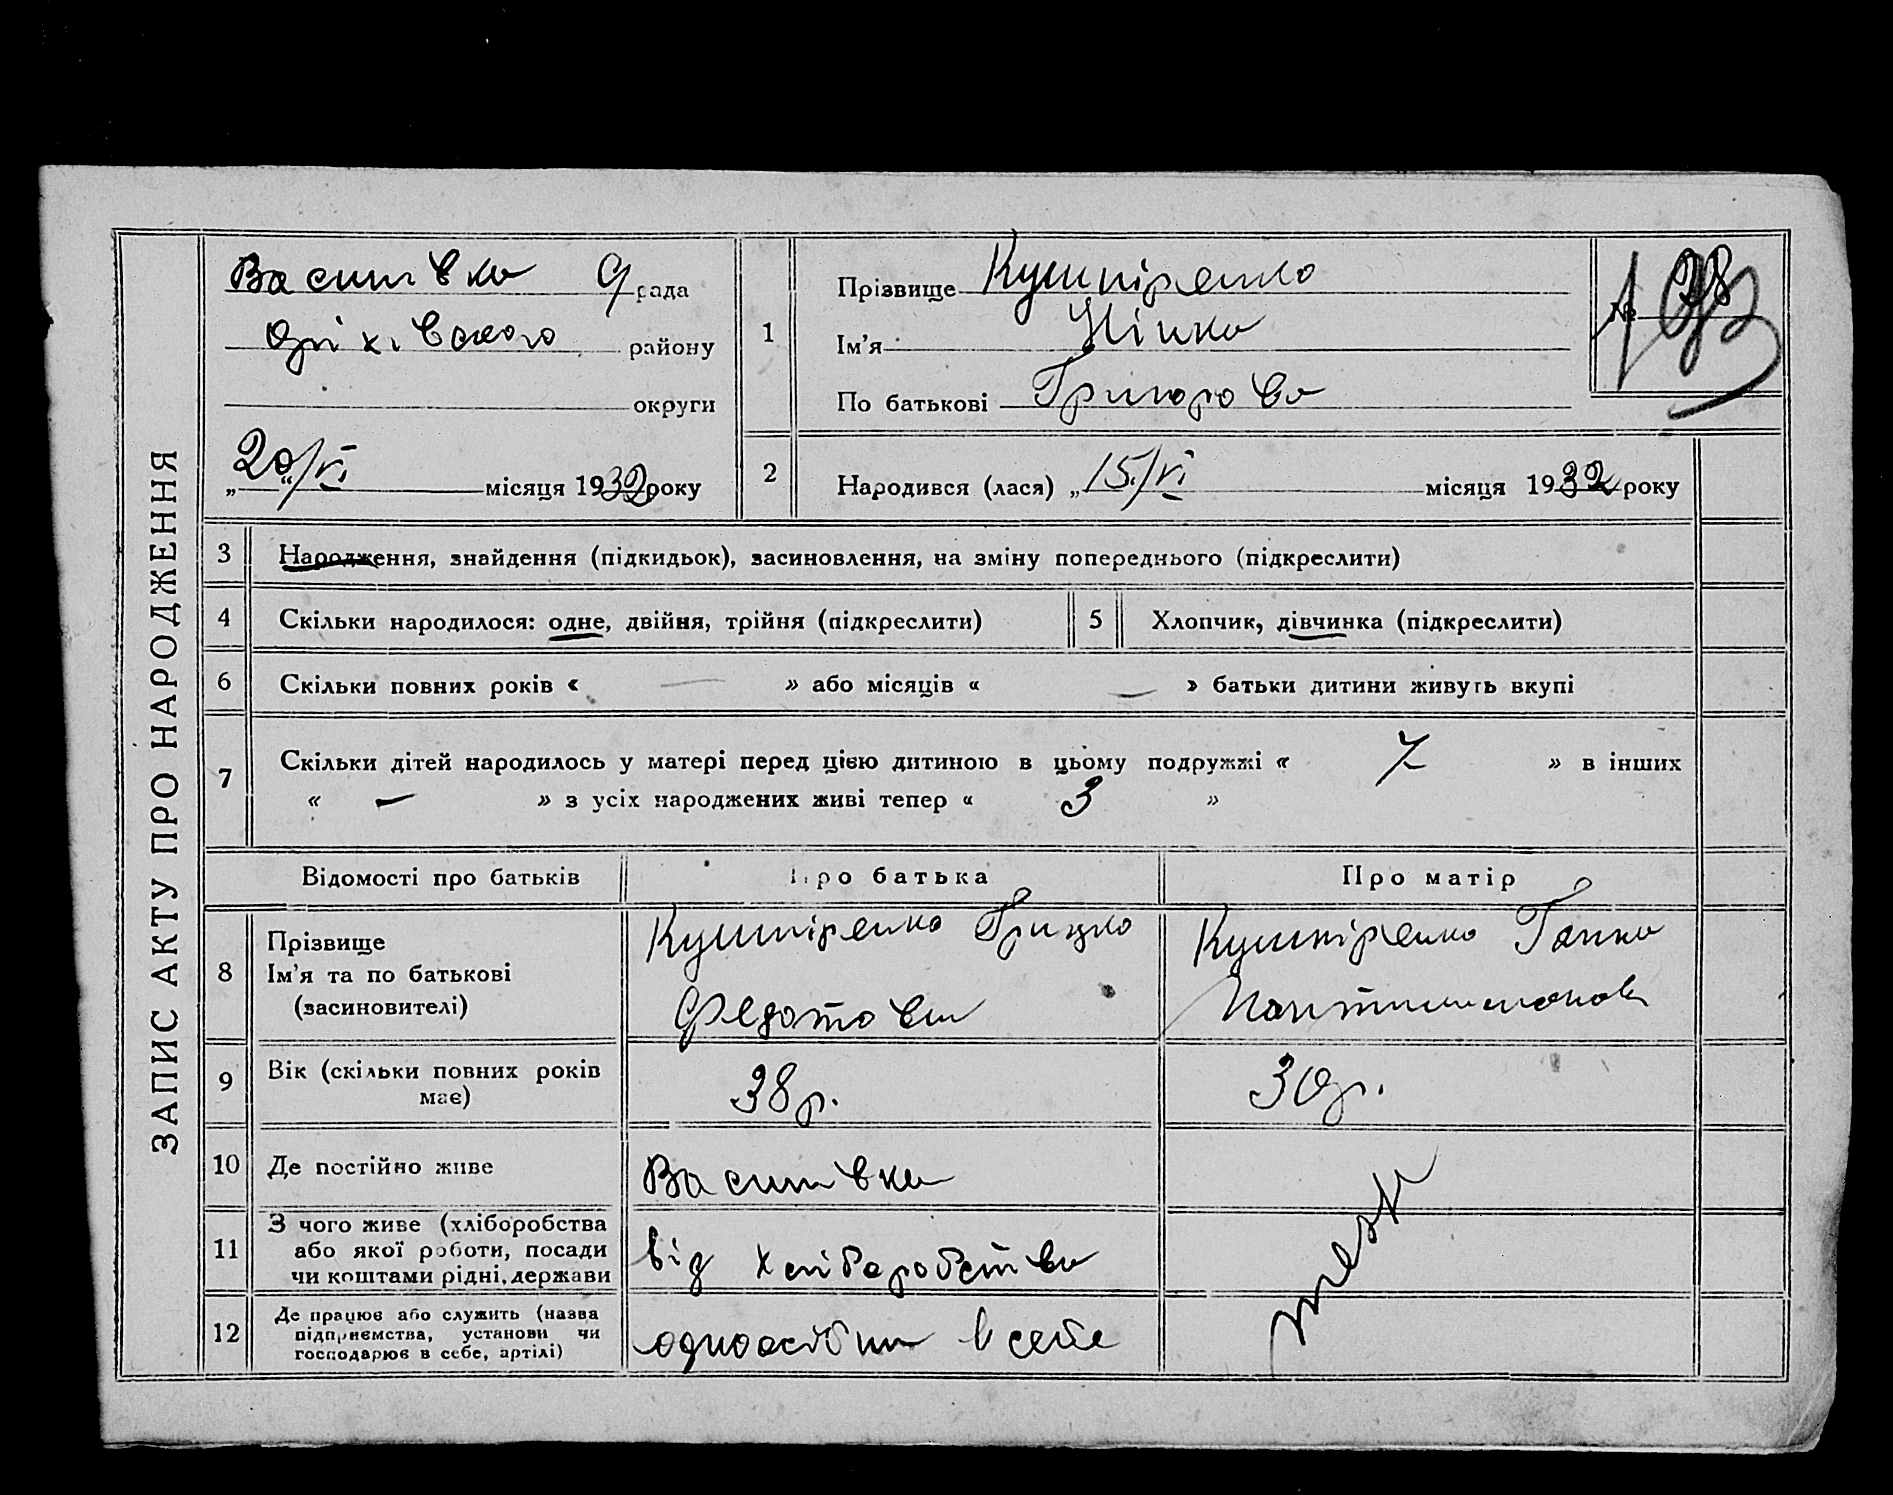 ЗАПИС АКТУ ПРО НАРОДЖЕННЯ
Василівка рада
Оріхівського району
округи
„20“/VI місяця 1932 року
1
Прізвище Кушніренко
Ім'я Нінка
По батькові Григорова
№ 98
2 Народився (лася) „15/VI місяця 1932 року
3 Народження, знайдення (підкидьок), засиновлення, на зміну попереднього (підкреслити)
4 Скільки народилося: одне, двійня, трійня (підкреслити) 5 Хлопчик, дівчинка (підкреслити)
6 Скільки повних років « — » або місяців « — » батьки дитини живуть вкупі
7 Скільки дітей народилось у матері перед цією дитиною в цьому подружжі « 7 » в інших
« — » з усіх народжених живі тепер « 3 »
Відомості про батьків Про батька Про матір
8 Прізвище Ім'я та по батькові (засиновителі)
Кушніренко Грицко
Федотови
Кушніренко Ганка
Пантилимонов
9 Вік (скільки повних років має) 38 р. 30 р.
10 Де постійно живе Василівка
11 З чого живе (хліборобства або якої роботи, посади чи коштами рідні, держави від хліборобства
12 Де працює або служить (назва підприємства, установи чи господарює в себе, артілі) одноосібни в себе
теж